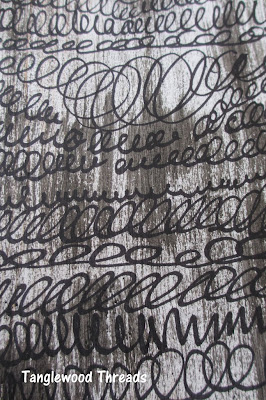 Tanglewood Threads